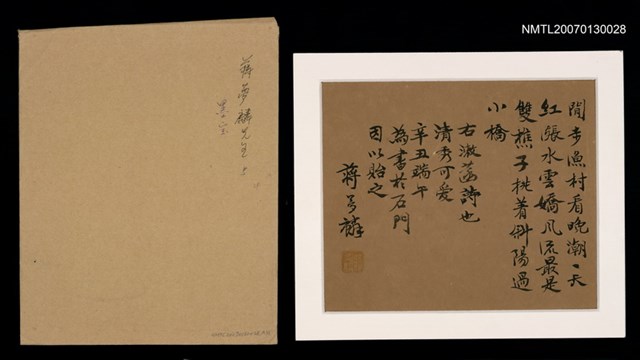 NMTL20070130028
蔣夢麟先生
墨宝
閒步漁村看晚潮、天
紅漲水雲嬌風流最是
雙樵子挑着斜陽過
小橋
右淑菡詩也
清秀可爱
辛丑端午
為書於石門
因以貽之
蔣夢麟